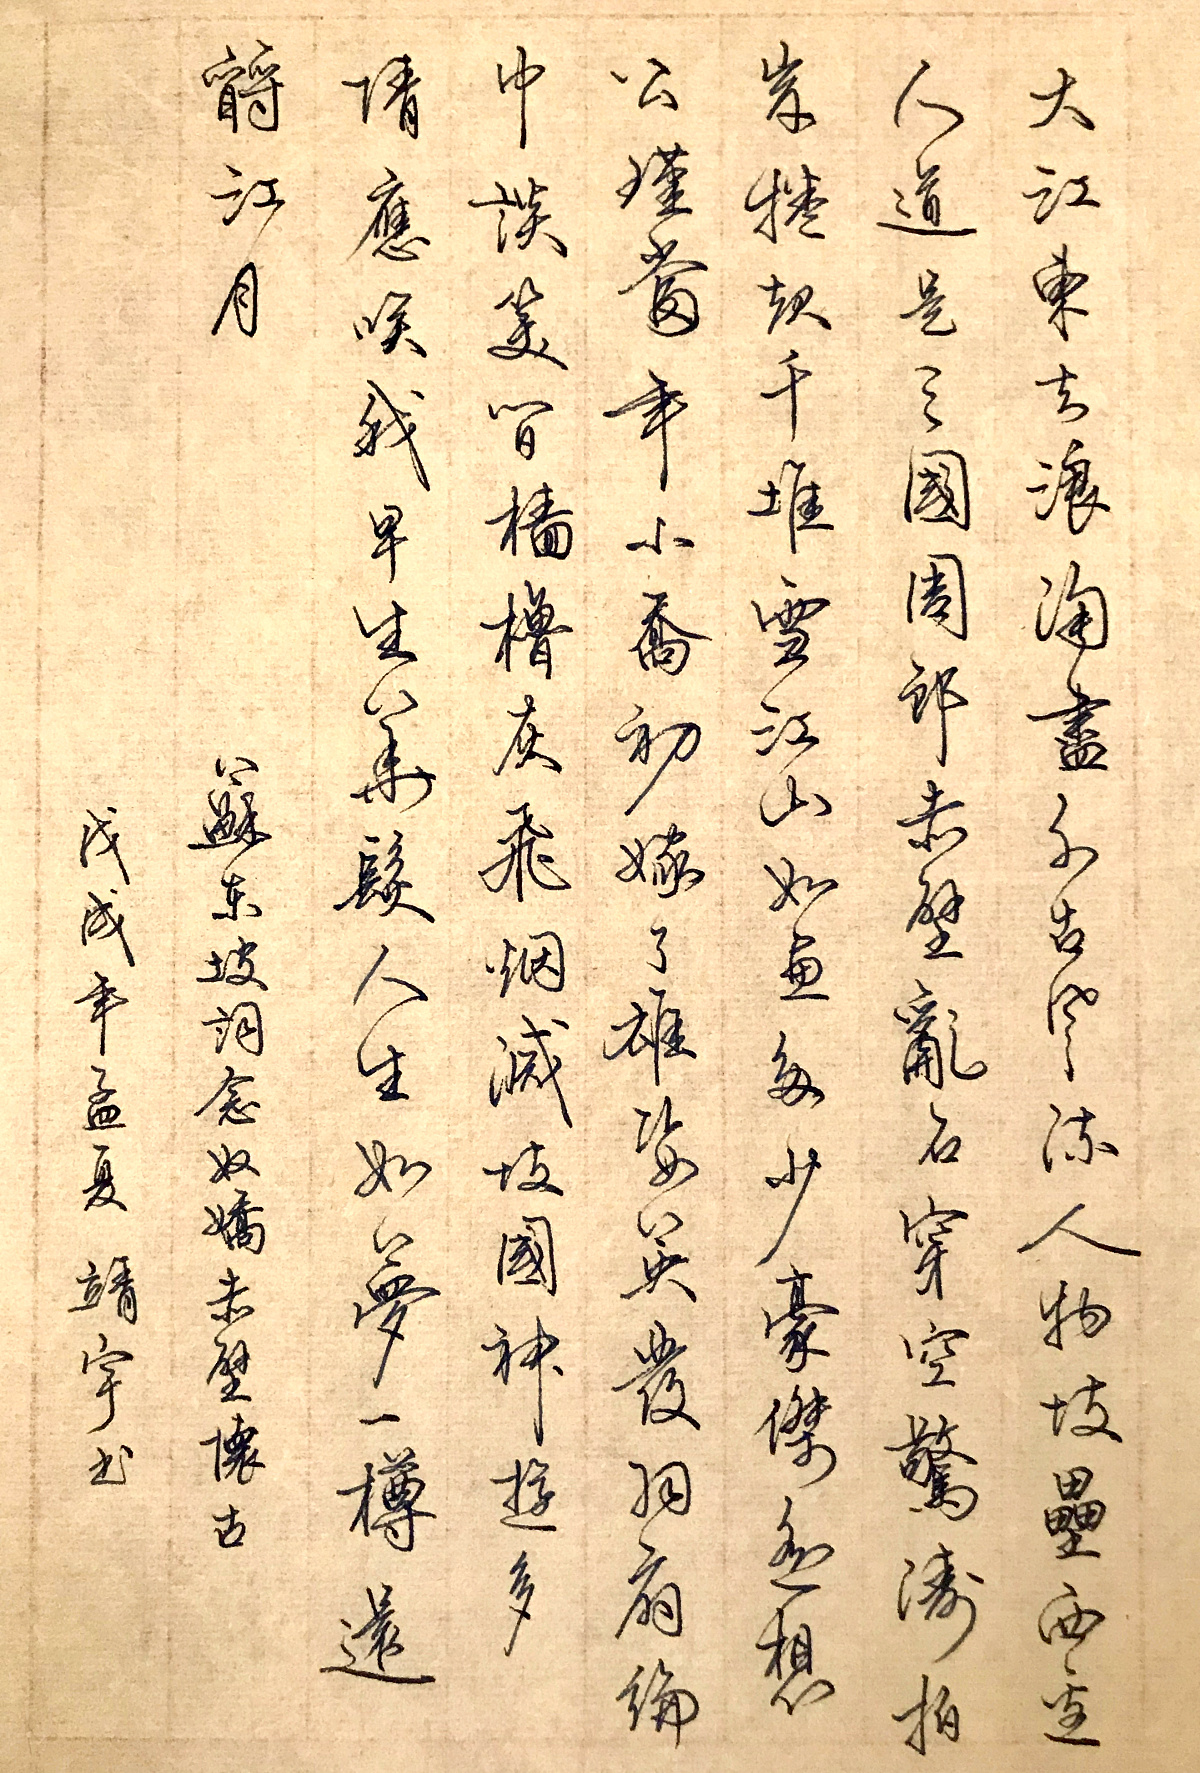 大江東去浪淘盡千古風流人物故壘西邊
人道是三國周郎赤壁亂石穿空驚濤拍
岸捲起千堆雪江山如畫多少豪傑遙想
公瑾當年小喬初嫁了雄姿英發羽扇綸
巾談笑間檣櫓灰飛烟滅故國神遊多
情應咲我早生華髮人生如夢一樽還
酹江月
蘇东坡詞念奴嬌赤壁懷古
戊戌年孟夏 靖宇书